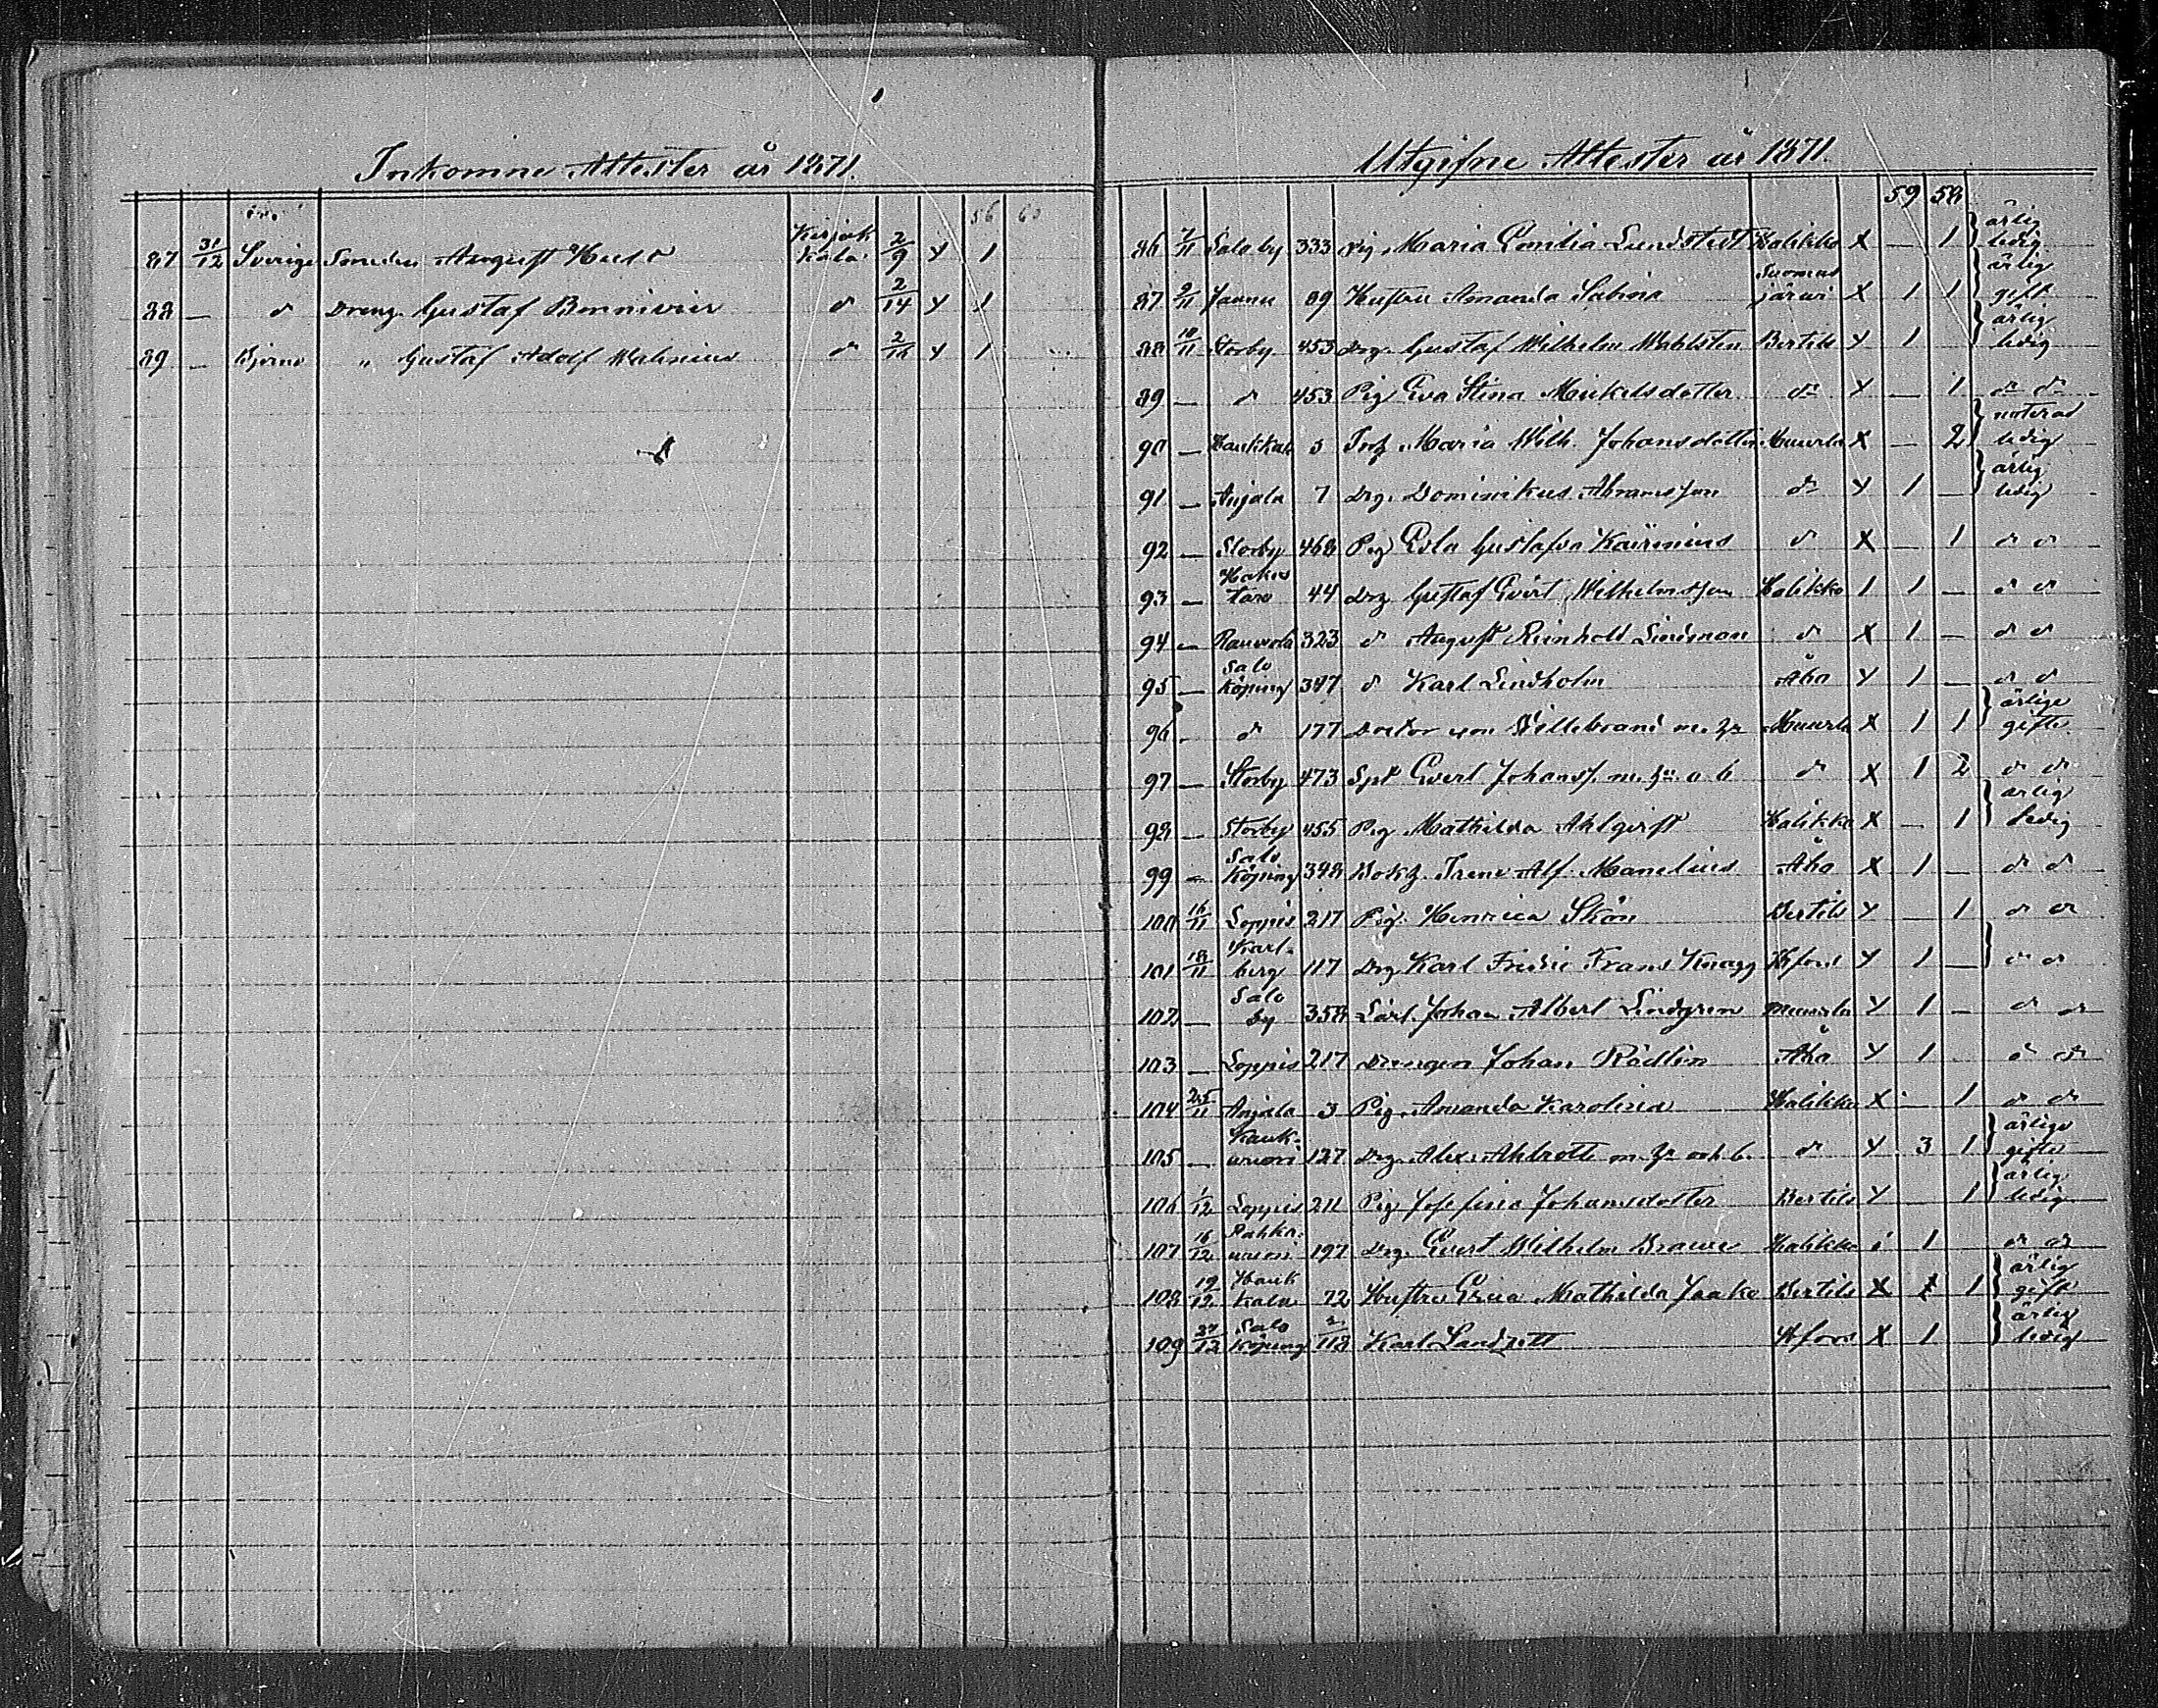 Inkomne Attester år 1871.
56 60
87 31/12 Sverige Smeden August Kirjak kala 2/9 X 1
88 — d Dreng. Gustaf Bonnivier d 2/14 X 1
89 — Bjerno " Gustaf Adolf Malenius d 2/16 X 1
Utgifne Attester år 1871.
59 58
86 7/11 Salo by 333 Pig. Maria Emilia Lundstedt Halikko X — 1 ärlig ledig
87 9/11 89 Hustru Amanda Sabina Suomus järwi X 1 1 ärlig gift
88 10/11 Storby 453 Drg. Gustaf Wilhelm Wahlsten Bertils X 1 ärlig ledig
89 — d 453 Pig Eva Stina Mickelsdotter do X — 1 do do
90 — Haukkala 5 Maria Wilh. Johansdotter Muurla X — 2 noterad ledig
91 — Anjala 7 Drg. Dominikus Abramsson do X 1 — ärlig ledig
92 — Storby 468 Pig Eva Gustafva d X — 1 d d
93 — Hakos taro 44 Drg Gustaf Evert Wilhelmsson Halikko 1 1 — d d
94 — 323 d August Reinhold Lindman d X 1 — d d
95 — Salo köping 347 d Karl Lindholm Åbo X 1 — d d
96 — d 177 Doctor von Willebrand m. h. Muurla X 1 1 ärlige gifte
97 — Storby 473 Evert Johanss. m. h. o b d X 1 2 d d
98 — Storby 455 Pig Mathilda Ahlqvist Halikko X — 1 ärlig ledig
99 — Salo Köping 348 Bokh. Irene Alf. Manelius Åbo X 1 — d d
100 16/11 Loppis 217 Pig. Henrica Skön Bertils X — 1 d d
101 18/11 Karl- berg 117 Drg Karl Fredric Frans Knagg Hfors X 1 — d d
102 — Salo by 358 Lärl. Johan Albert Lindgren Muurla X 1 — d d
103 — Loppis 217 Drengen Johan Rödlin Åbo X 1 d d
104 25/11 Anjala 3 Pig. Amanda Karolina Halikko X 1 d d
105 — 127 Drg. Alex. Ahlroth m. h. och b. d X 3 1 ärlige gifte
106 1/12 Loppis 211 Pig Josefina Johansdotter Bertils X 1 ärlig ledig
107 16/12 197 Drg. Evert Wilhelm Halikko 1 d d
108 19/12 Hauk kala 72 Hustru Erica Mathilda Jaako Bertils X 1 ärlig gift
109 27/12 Salo Köping 2/118 Karl Hfors X 1 ärlig ledig